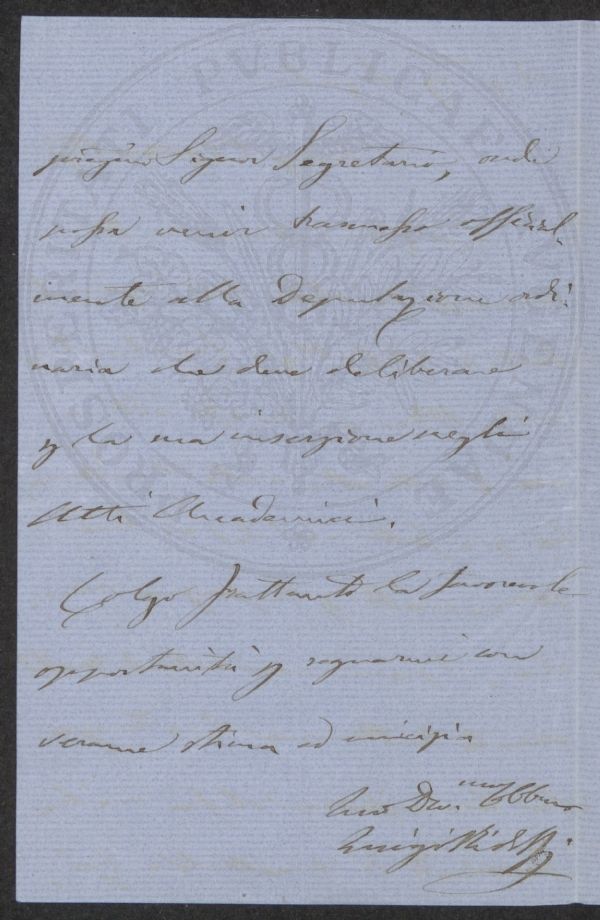 pregiẽno Signor Segretario, onde
possa venir trasmesso official-
mente alla Deputazione ordi-
naria che deve deliberare
p la sua inserzione negli
Atti Accademici.
Colgo frattanto la favorevole
opportunità p segnarmi con
verace stima ed amicizia
Suo Dev.mo Obbmo
Luigi